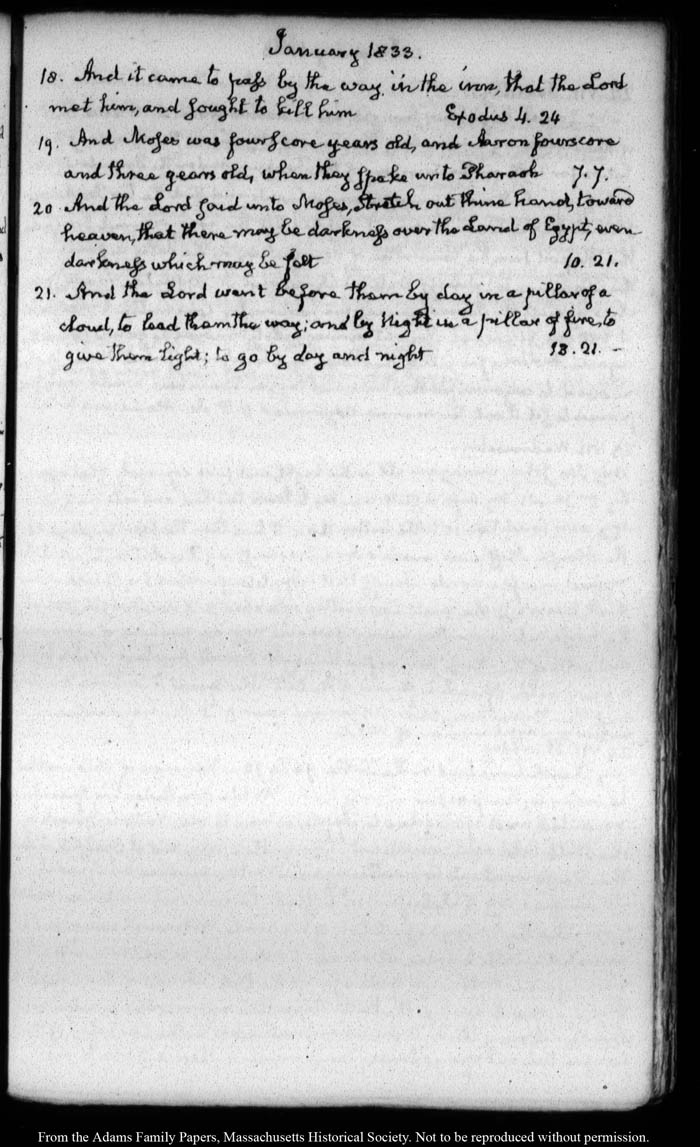 January 1833.
18. And it came to pass by the way in the inn, that the Lord
met him, and sought to kill him Exodus 4. 24
19. And Moses was fourscore years old, and Aaron fourscore
and three years old, when they spake unto Pharaoh 7. 7.
20 And the Lord said unto Moses, Stretch out thine hand, toward
heaven, that there may be darkness over the Land of Egypt, even
darkness which may be felt 10. 21.
21. And the Lord went before them by day in a pillar of a
cloud, to lead them the way; and by Night in a pillar of fire, to
give them light; to go by day and night 13. 21. -
From the Adams Family Papers, Massachusetts Historical Society. Not to be reproduced without permission.